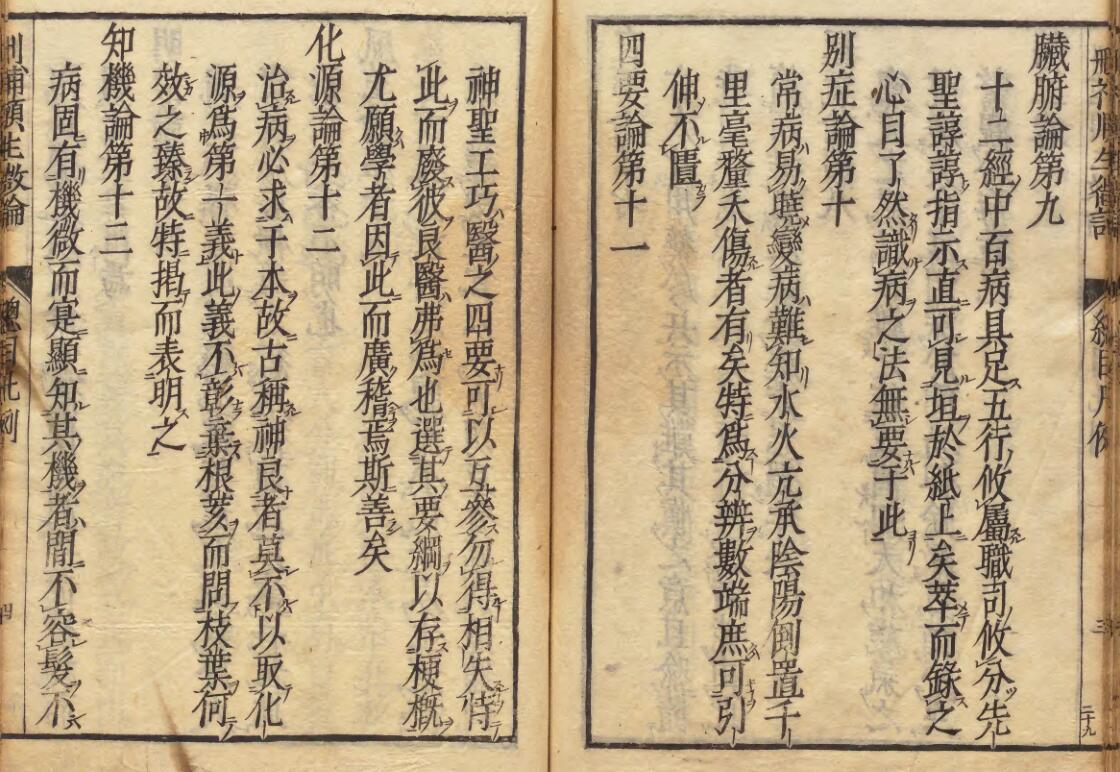 臟腑論第九
十二經中百病具足五行攸屬職司攸分先
聖諄諄指示直可見垣於紙上矣萃而錄之
心目了然識病之法無要于此
別症論第十
常病易曉變病難知水火亢承陰陽倒置千
里毫釐夭傷者有矣特爲分辨數端庶可引
伸不匱
四要論第十一
神聖工巧醫之四要可以互參勿得相失恃
此而廢彼良醫弗爲也選其要綱以存梗概
尤願學者因此而廣稽焉斯善矣
化源論第十二
治病必求于本故古稱神良者莫不以取化
源爲第一義此義不彰棄根荄而問枝葉何
效之臻故特揭而表明之
知機論第十三
病固有機微而寔顯知其機者間不容髮不